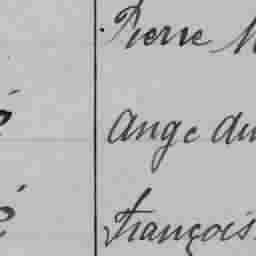 Pierre
Ange du
François